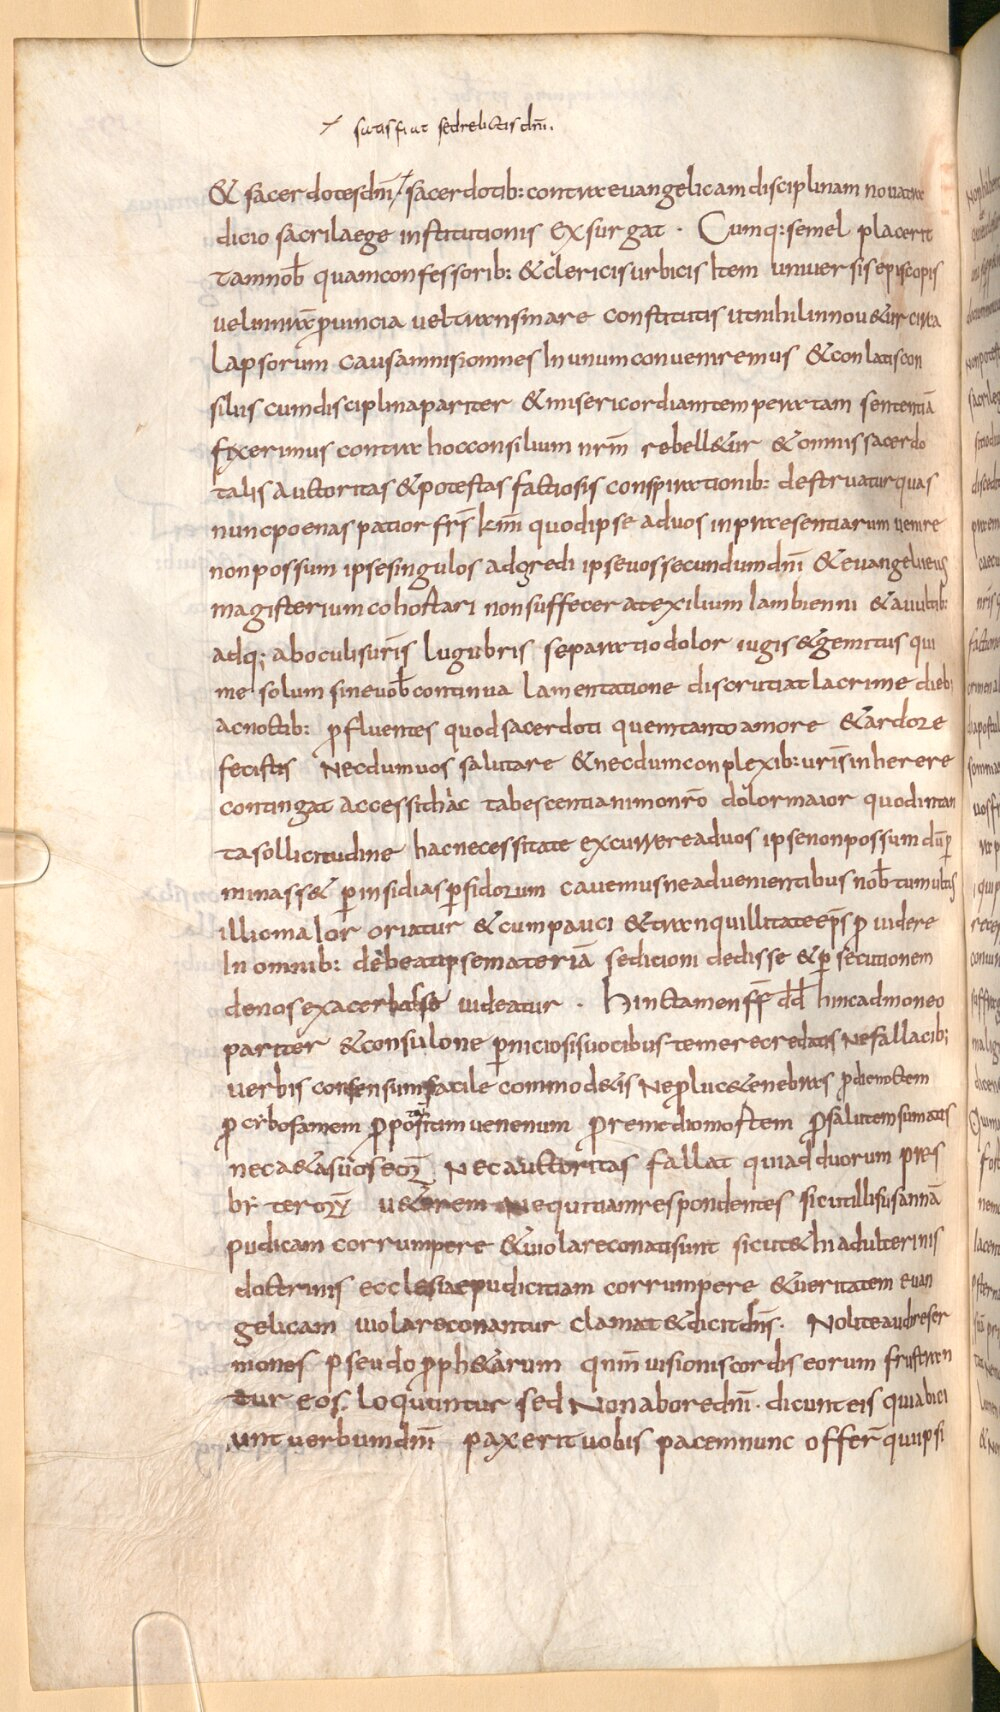 ⁊ satisfiat sed relictis dnī.
& sacerdotes dnī ⁊ sacerdotib: contra euangelicam disciplinam noua tra
dicio sacrilaege institutionis exsurgat · Cumq: semel placerit
tam nob̄ quam confessorib: & clericis urbicis Item uniuersis episcopis
uel in nr̄a ꝓuincia uel trans mare constitutis ut nihil innou&ur circa
lapsorum causam nisi omnes In unum conueniremus & conlatis con
siliis cum disciplina pariter & misericordiam temperatam sententiā
fixerimus contra hoc consilium nrm̄ rebell&ur & omnis sacerdo
talis Auctoritas & potestas factiosis conspirationib: destruatur quas
nunc poenas patior frs̄ km̄i quod ipse ad uos in praesentiarum uenire
non possum ipse singulos adgredi ipse uos secundum dnī & euangelii eius
magisterium cohortari non suffecerat exilium Iam bienni & a uultib:
adq; ab oculis uris̄ lugubris separatio dolor iugis & gemitus qui
me solum sine uob̄ continua lamentatione discrutiat lacrime dieb;
ac noctib: ꝓfluentes quod sacerdoti quem tanto amore & ardore
fecistis Necdum uos salutare & necdum conplexib: uris̄ inherere
contingat Accessit hàc tabescenti animo nrō dolor maior quod in tan
ta sollicitudine hac necessitate excurrere ad uos ipse non possum dum̄ ꝑ
minas s& ꝑ insidias ꝑfidorum cauemus ne aduenientibus nob̄ tumultus
illic maIor oriatur & cum pauci & tranquillitate eps̄ ꝓuidere
In omnib: debeat ipse materiā sedicioni dedisse & ꝑsecutionem
denos exacerbasse uideatur · Hinc tamen ff̄ dd̄ hinc admoneo
pariter & consulo ne ꝑniciosis uocibus temere credatis Ne fallacib;
uerbis consensum facile commod&is Ne ꝓ luc& tenebras ꝓ die noctem
ꝓ cybo famem ꝓ potu venenum ꝓ remedio mortem ꝓ salutem sumatis
nec a&as uos eoꝝ Nec auctoritas fallat qui ad duorum pres
br̄ teroꝝ u&erem nequitiam respondentes sicut illi susannā
pudicam corrumpere & uiolare conati sunt sic ut & hi adulterinis
doctrinis ecclesiae pudicitiam corrumpere & ueritatem euan
gelicam uiolare conantur clamat & dicit dns̄ · Nolite audire ser
mones pseudo ꝓph&arum qnm̄ uisionis cordis eorum frustran
tur eos loquuntur sed Non ab ore dnī · dicunt eis qui abici
unt uerbum dnī pax erit uobis pacem nunc offer̄ qui ipsi